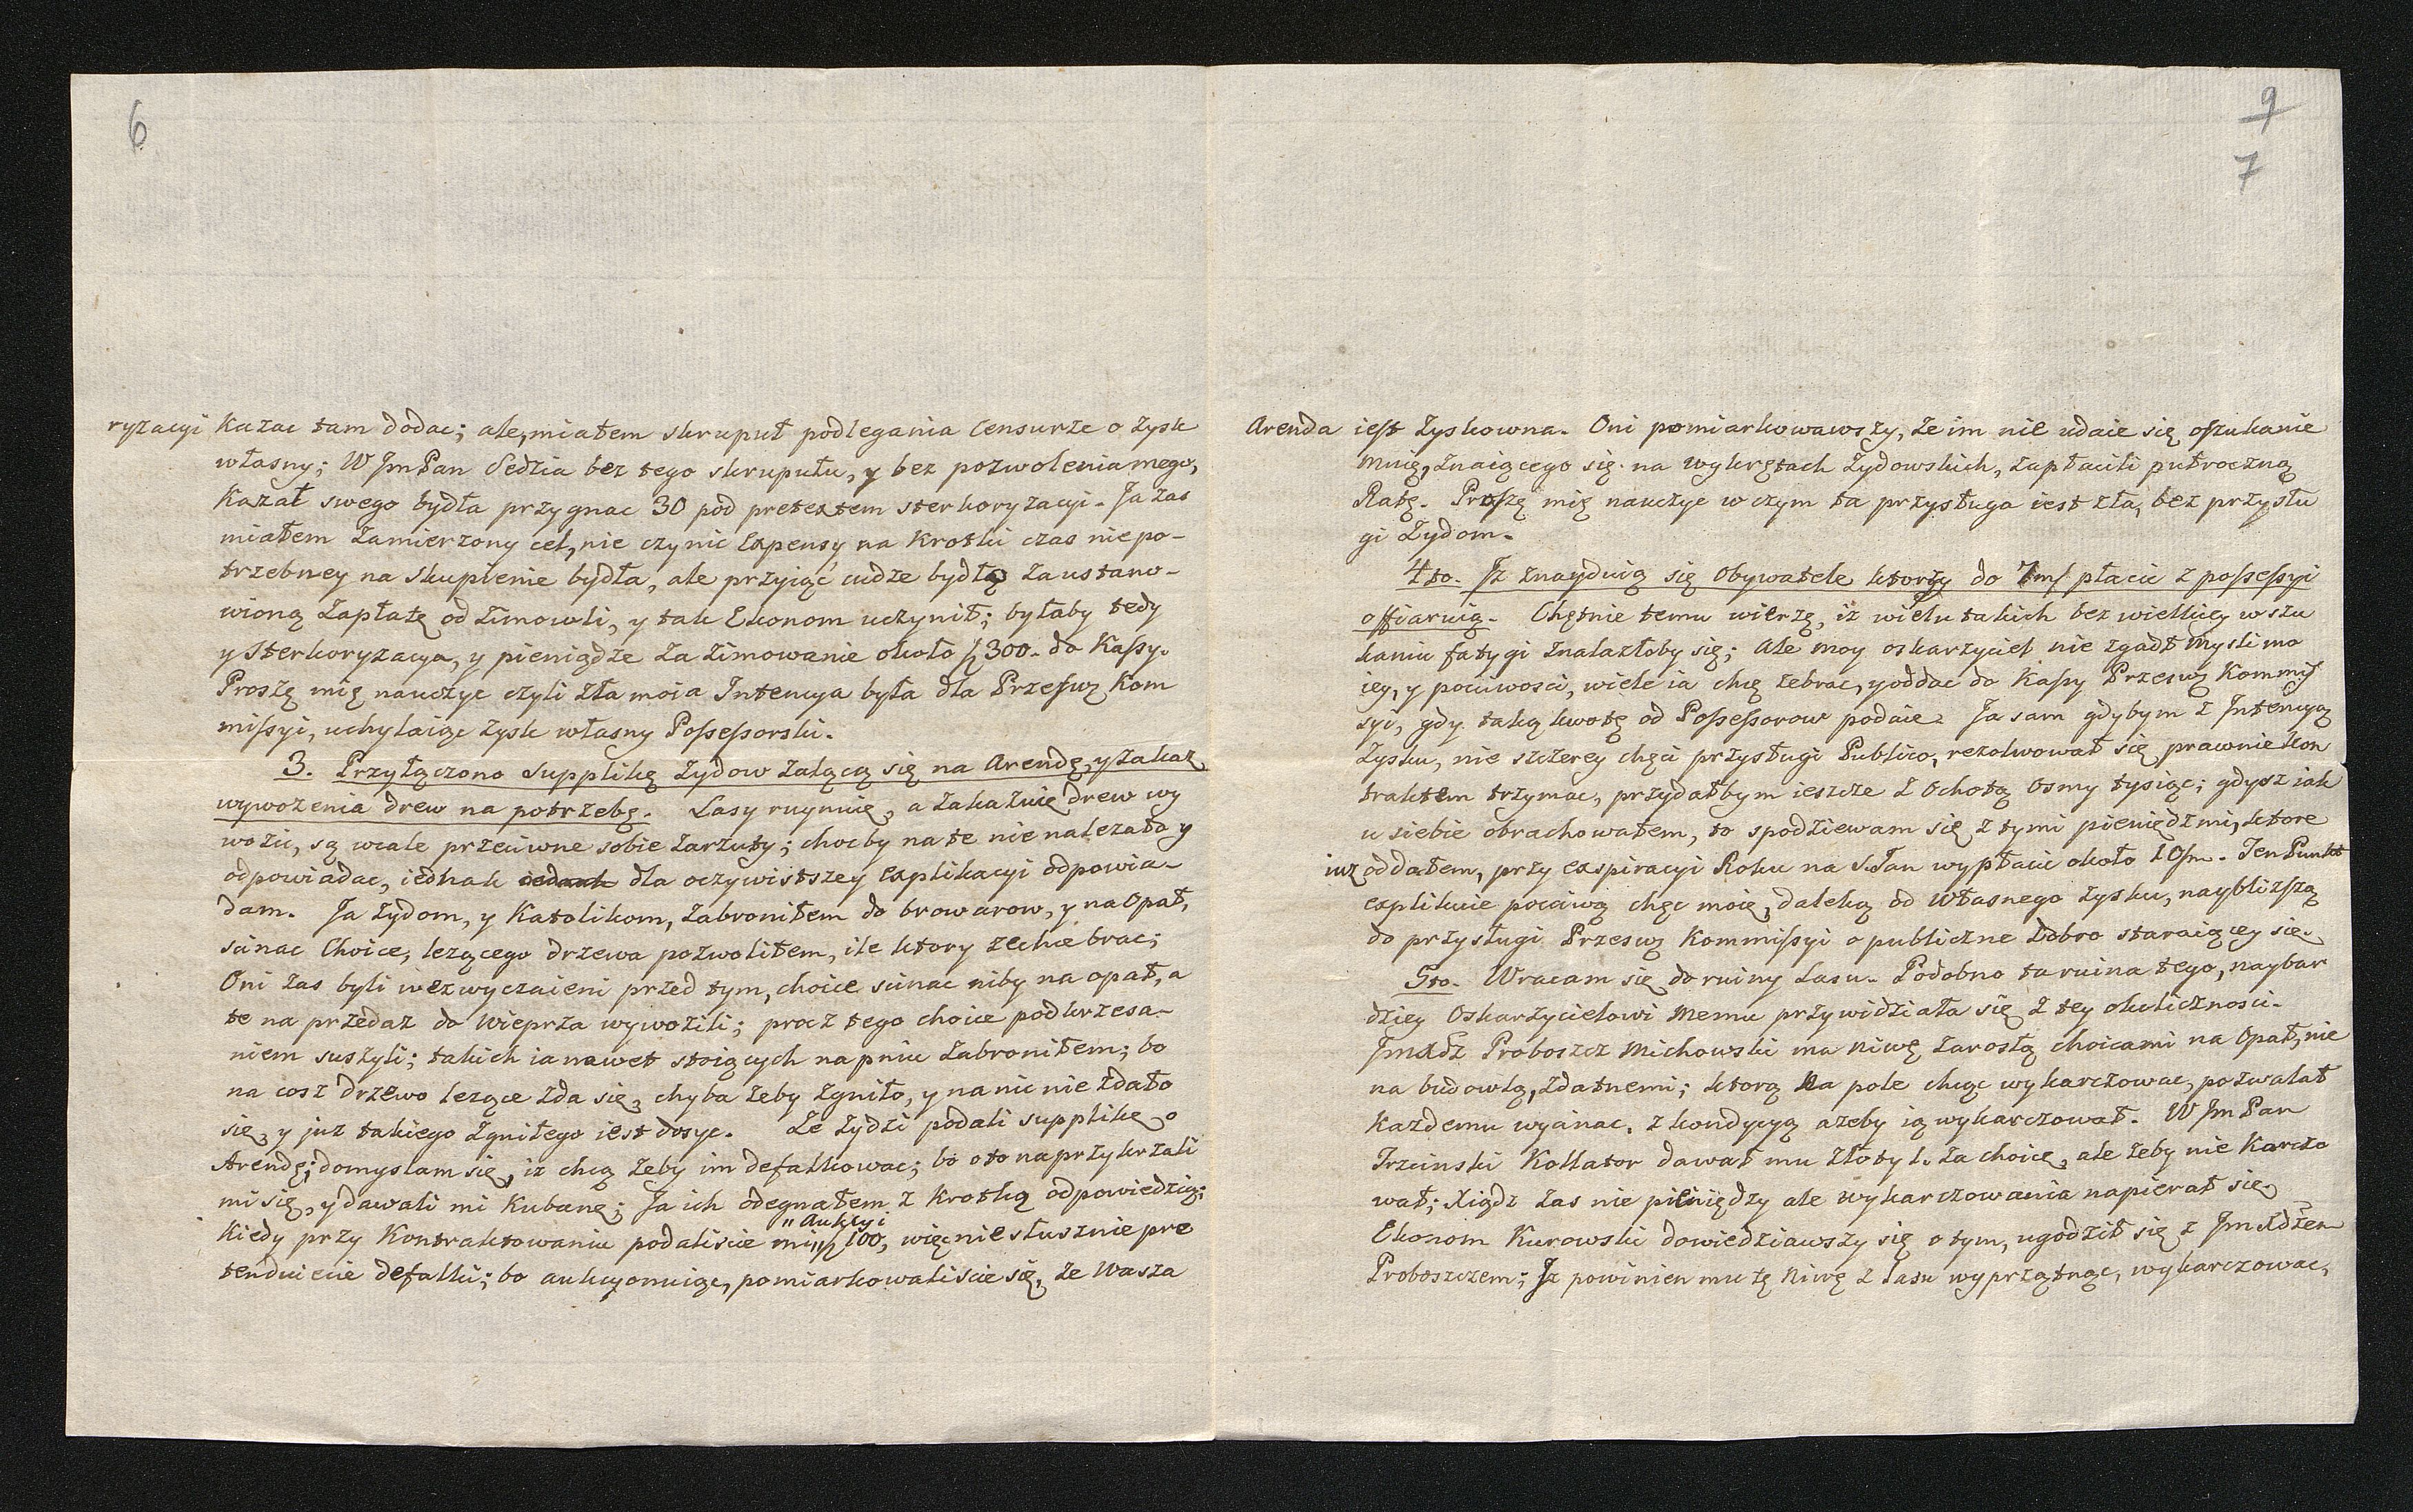 6
ryzacyi kazac tam dodac; ale, miałem skrupuł podlegania Censurze o zysk
własny; WJmPan Sedzia bez tego skrupułu, y bez pozwolenia mego,
kazał swego bydła przygnac 30 pod pretextem sterkoryzacyi. Ja zas
miałem zamierzony cel, nie czynic Expensy na krotki czas niepo-
trzebney na skupienie bydła, ale przyiąć cudze bydło za ustano-
wioną zapłatę od zimowli, y tak Ekonom uczynił; byłaby tedy
y sterkoryzacya, y pieniądze za zimowanie około f 300. do Kassy.
Proszę mię nauczyc czyli zła moia Intencya była dla Przeswz Kom
missyi, uchylaiąc zysk własny Possessorski.
3. Przyłączono supplikę Zydow żalącą się na Arendę, y zakaz
wywozenia drew na potrzebę. Lasy ruynuię, a zakazuię drew wy
wozic, są wcale przeciwne sobie zarzuty; chocby na te nie nalezało y
odpowiadac, iednak iednak dla oczywistszey explikacyi odpowia-
dam. Ja Zydom, y Katolikom, zabroniłem do browarow, y na Opał,
scinac Choice, lezącego drzewa pozwoliłem, ile ktory zechce brac;
Oni zas byli wezwyczaieni przed tym, choice scinac niby na opał, a
te na przedaz do Wieprza wywozili; procz tego choice podkrzesa-
niem suszyli; takich ia nawet stoiących na pniu zabroniłem; bo
na cosz drzewo lezące zda się, chyba zeby zgniło, y na nic nie zdało
się, y juz takiego zgniłego iest dosyc. Ze Zydzi podali supplikę o
Arendę; domyslam się, iz chcą zeby im defalkowac; bo o to naprzykrzali
mi się, y dawali mi Kubanę; Ja ich odegnałem z krotką odpowiedzią;
" Aukcyi
Kiedy przy Kontraktowaniu podaliscie mi " f 100, więc nie słusznie pre
tenduiecie defalki; bo aukcyonuiąc, pomiarkowaliscie się, ze Wasza
9
7
Arenda iest zyskowna. Oni pomiarkowawszy, ze im nie udaie się oszukanie
mnię, znaiącego się na wykrętach Zydowskich, zapłacili pułroczną
Ratę. Proszę mię nauczyc w czym ta przysługa iest zła, bez przysłu
gi Zydom.
4to. Jz znayduią się Obywatele ktorzy do 7m/ płacic z possessyi
offiaruią. Chętnie temu wierzę, iz wielu takich bez wielkiey w szu
kaniu fatygi znalazłoby się; Ale moy oskarzyciel nie zgadł mysli mo
iey, y pociwosci, wiele ia chcę zebrac, y oddac do Kassy Przeswz Kommis
syi, gdy taką kwotę od Possessorow podaie. Ja sam gdybym z Jntencyą
zysku, nie szczerey chęci przysługi Publico, rezolwował się prawnie kon
traktem trzymac, przydałbym ieszcze z Ochotą Osmy tysiąc; gdysz iak
u siebie obrachowałem, to spodziewam się z tymi pieniędzmi, ktore
iuz oddałem, przy exspiracyi Roku na S. Jan wypłacic około 10/m. Ten Punkt
explikuie pociwą chęc moię, daleką od własnego zysku, nayblizszą
do przysługi Przeswz Kommissyi o publiczne Dobro staraiącey się.
5to. Wracam się do ruiny Lasu. Podobno ta ruina tego, naybar
dziey Oskarzycielowi memu przywidziała się z tey okolicznosci.
JmXdz Proboszcz Michowski ma niwę zarosłą choicami na Opał, nie
na budowlą, zdatnemi; ktorą na pole chcąc wykarczowac, pozwalał
kazdemu wycinac, z kondycyą azeby ią wykarczował. WJmPan
Trzcinski Kollator dawał mu złoty 1. za choicę, ale zeby nie karczo
wał; Xiądz zas nie pieniędzy ale wykarczowania napierał się.
Ekonom Kurowski dowiedziawszy się o tym, ugodził się z JmXdzem
Proboszczem; Jz powinien mu tę niwę z lasu wyprzątnąc, wykarczowac,